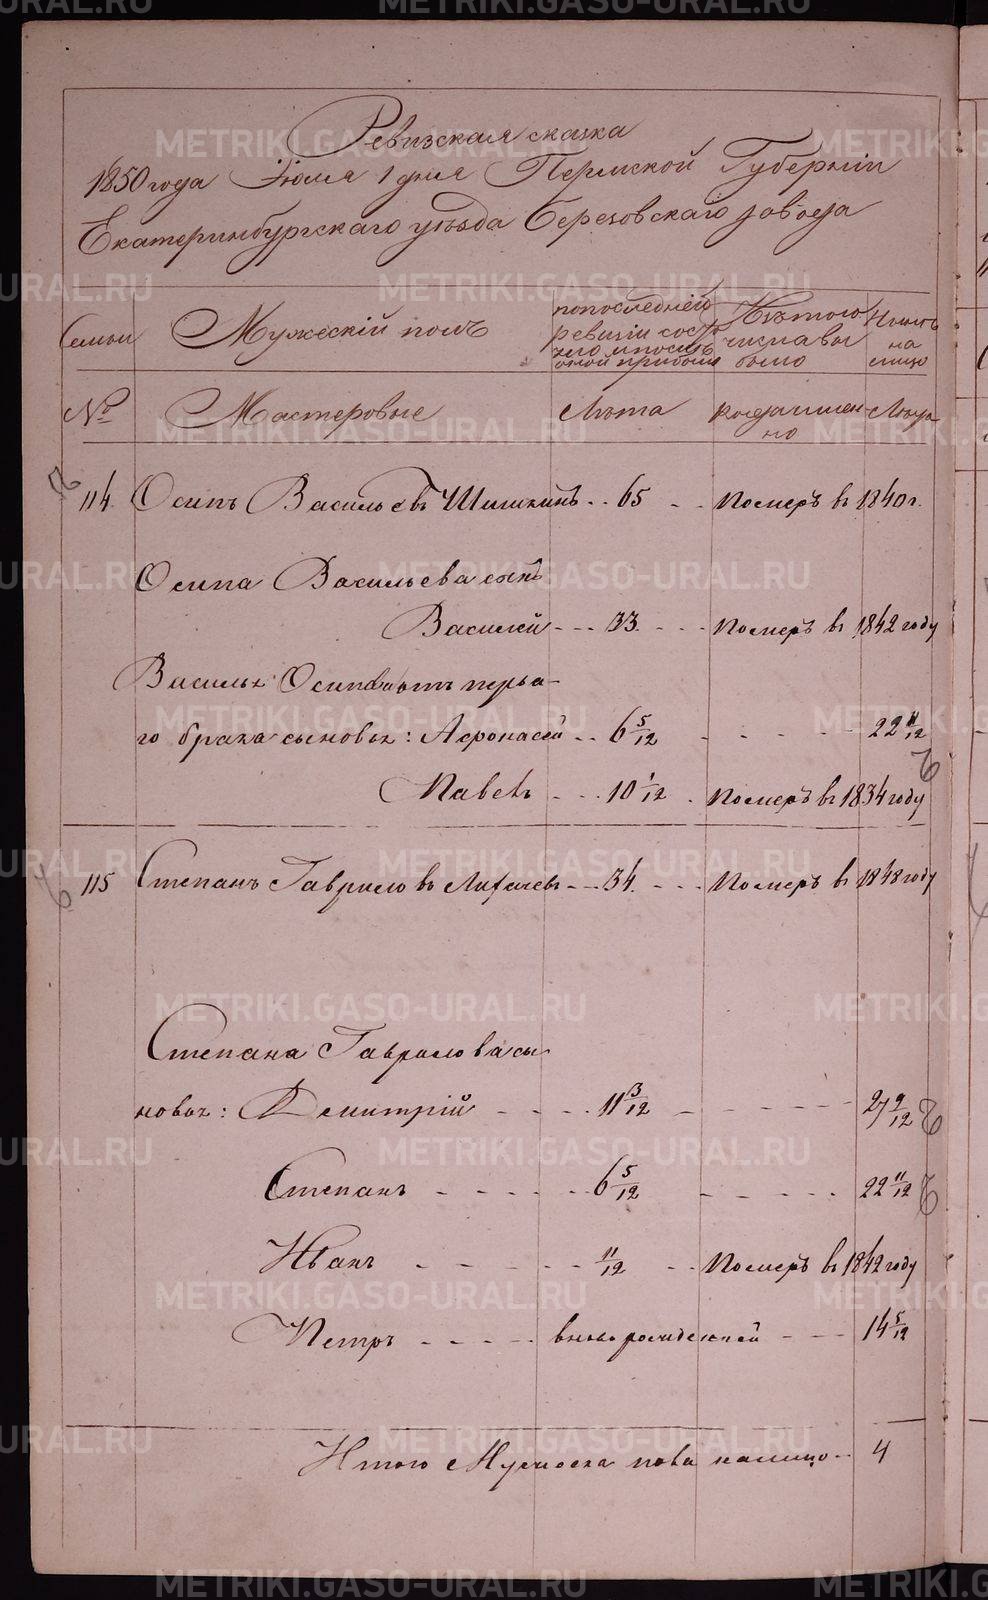 Ревизская сказка
1850 года Июля 1 дня Пермской Губернiи
Екатеринбургскаго уѣзда Березовскаго завода
Семьи Мужескiй полъ по последней ревизiи состояло и после оной прибыло Изъ того числа выбыло Нынѣ на лицо
№ Мастеровые Лѣта когда именно Лѣта
114. Осипъ Васильевъ Шишкинъ 65 Померъ въ 1840 г.
Осипа Васильева сынъ
Василей 33. Померъ въ 1842 году
Василья Осипова отъ перва-
го брака сыновья: Афонасей 6 5/12 22 11/12
Павелъ 10 1/12 Померъ въ 1834 году
115 Степанъ Гавриловъ Лихачевъ 34. Померъ въ 1848 году
Степана Гаврилова сы-
новья: Дмитрiй 11 3/12 27 9/12
Степанъ 6 5/12 22 11/12
Иванъ 11/12 Померъ въ 1842 году
Петръ вновьрожденной 14 5/12
Итого Мужеска пола налицо 4
METRIKI.GASO-URAL.RU